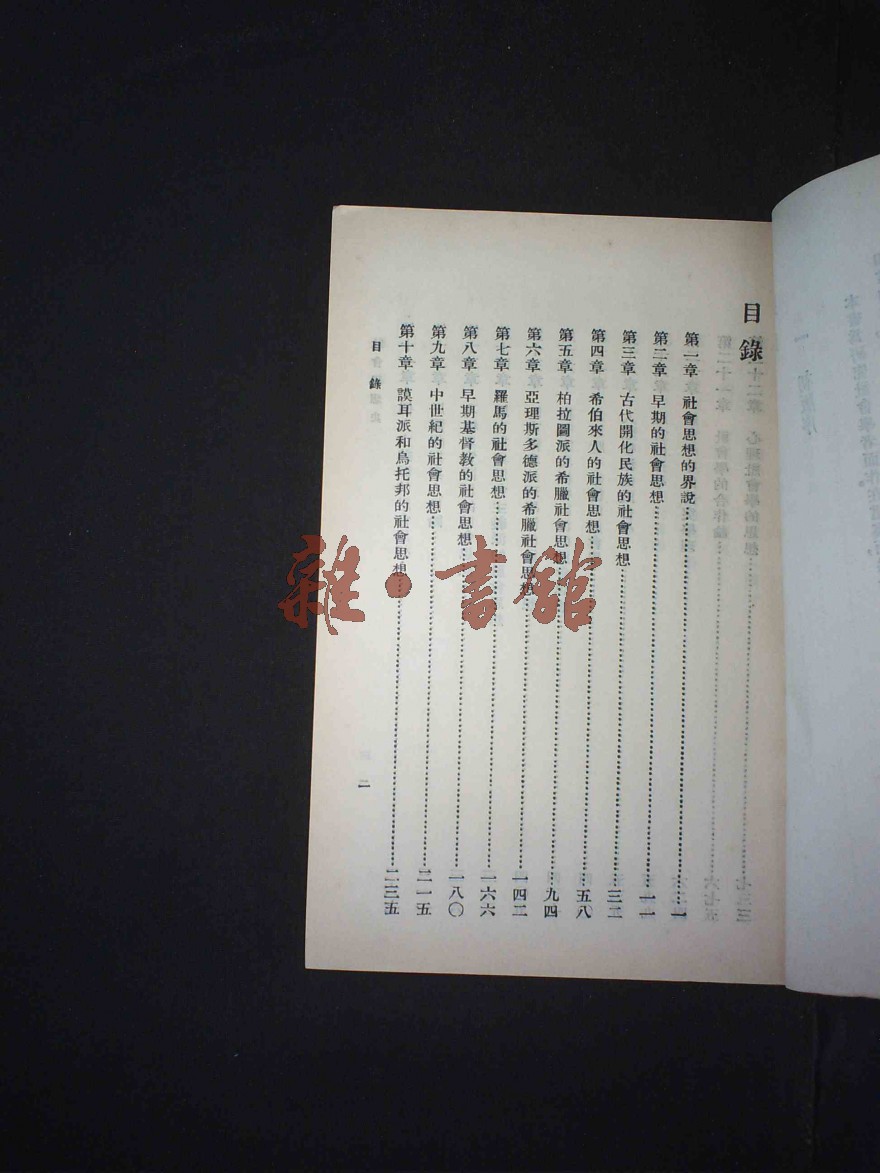 目錄
第一章 社會思想的界說……一
第二章 早期的社會思想……一一
第三章 古代開化民族的社會思想……三二
第四章 希伯來人的社會思想……五八
第五章 柏拉圖派的希臘社會思想……九四
第六章 亞理斯多德派的希臘社會思想……一四二
第七章 羅馬的社會思想……一六六
第八章 早期基督教的社會思想……一八〇
第九章 中世紀的社會思想……二一五
第十章 謨耳派和烏托邦的社會思想……二三五
目錄
二
雜·書館